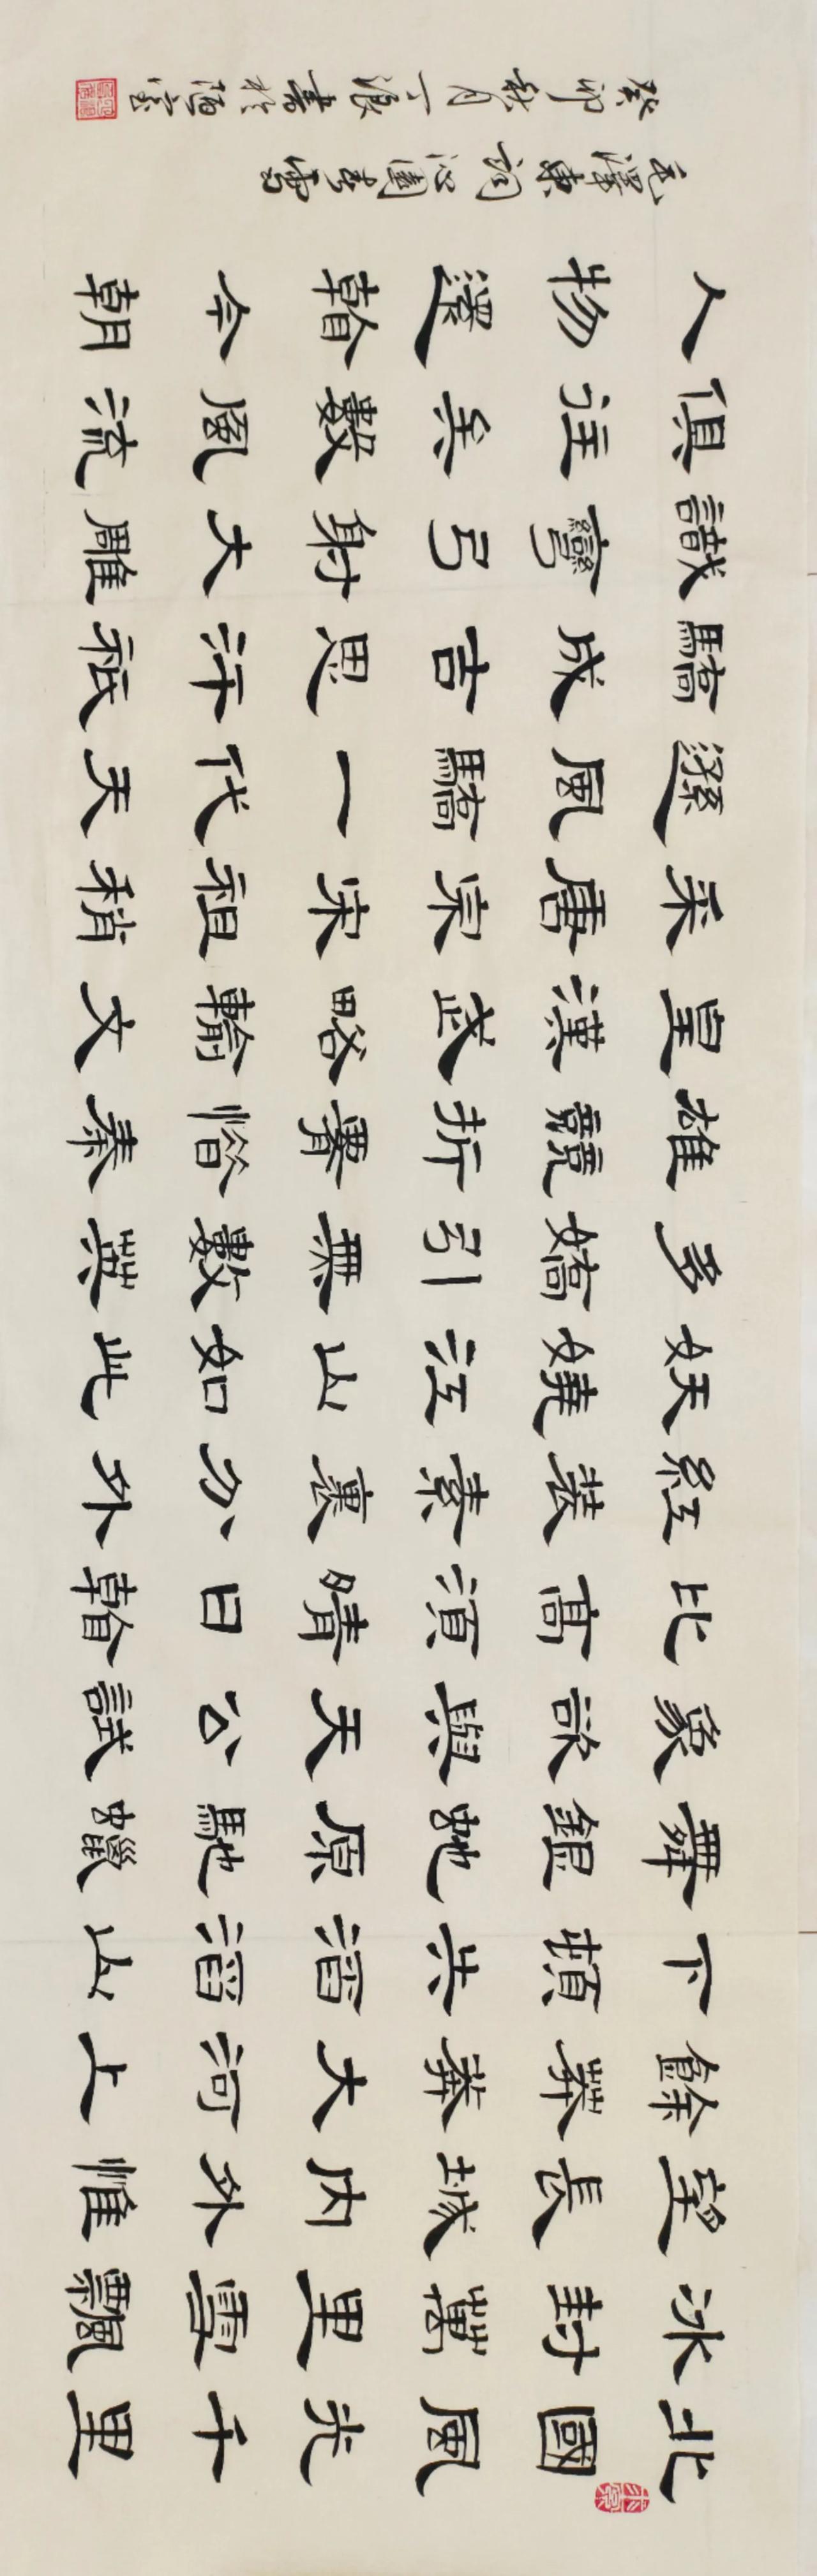 北國風光千里
冰封萬里雪飄
望長城内外惟
餘莽莽大河上
下頓失滔滔山
舞銀蛇原馳蠟
象欲與天公試
比高須晴日看
紅裝素裹分外
妖嬈江山如此
多嬌引無數英
雄競折腰惜秦
皇漢武略輸文
采唐宗宋祖稍
遜風騷一代天
驕成吉思汗祇
識彎弓射大雕
俱往矣數風流
人物還看今朝
毛澤東詞沁園春雪
癸卯秋月丁浪書於陋室